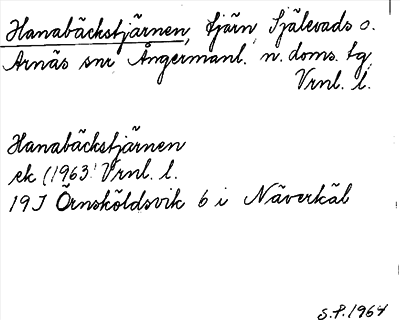 Hanabäckstjärnen, tjärn, Själevads o.
Arnäs snr Ångermanl. n. doms. tg,
Vrnl. l.
Hanabäckstjärnen
ek (1963) Vrnl. l.
19J Örnsköldsvik 6 i Näverkäl
S.P. 1964